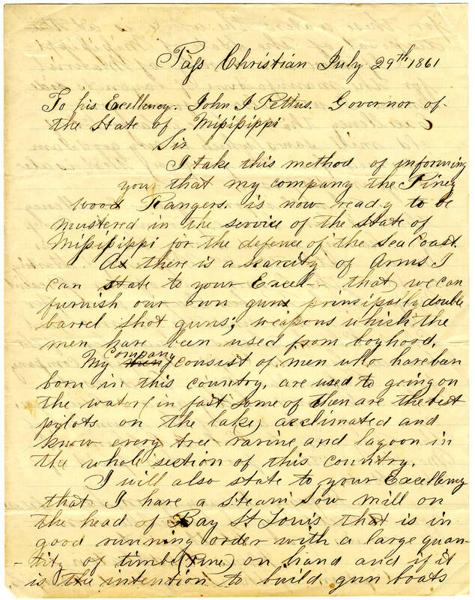 Pass Christian July 29th 1861
To his Excellency. John J Pettus. Governor of
the State of Missisippi
Sir
I take this method of informing
you that my company the Piney
Wood Rangers. is now ready to be
mustered in the service of the State of
Missisippi for the defence of the Sea Coast.
As there is a scarcity of Arms I
can state to your Excel- that we can
furnish our own guns principely double
barrel shot guns; weapons which the
men have been used from boyhood.
My Company consist of men who have ban
born in this country. are used to going on
the water (in fact some of them are the best
pilots on the lake) acclimated and
know every tree ravine and lagoon in
the whole section of this country.
I will also state to your Excellency
that I have a steam Sow Mill on
the head of Bay St Louis that is in
good running order with a large quan-
-tity of timbe (Pine) on hand and if it
is the intention to build gun boats